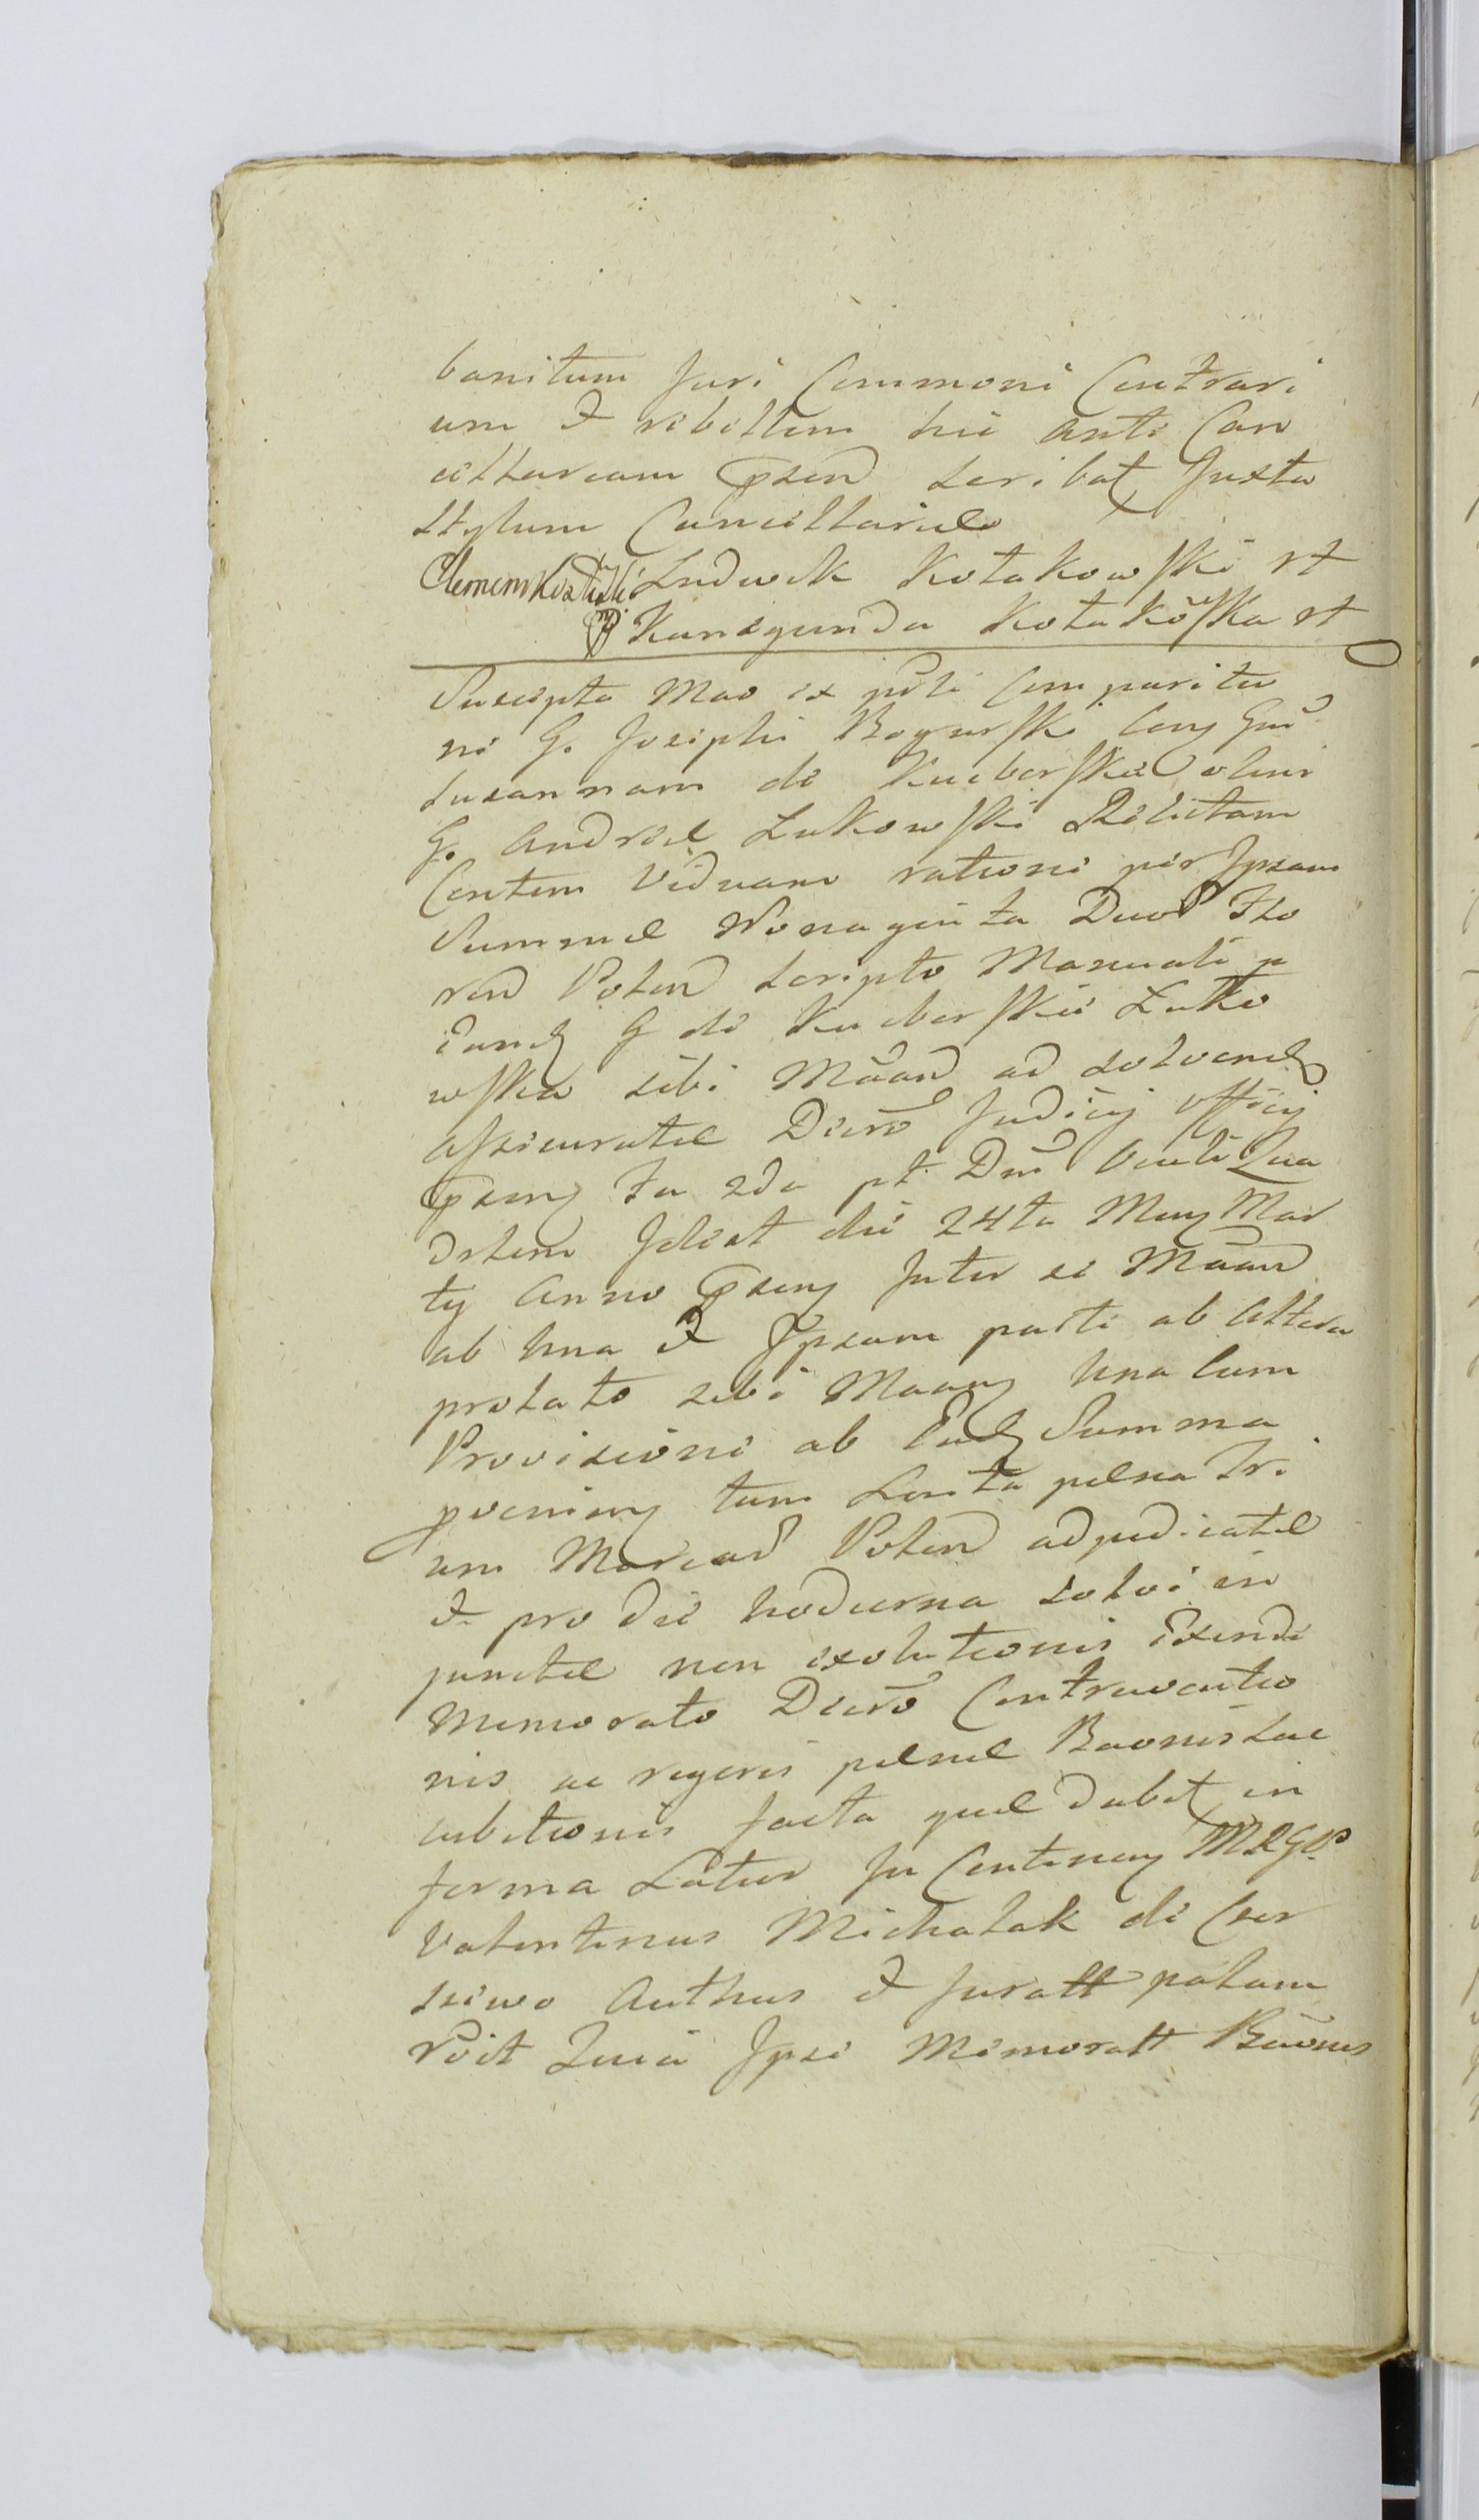 banitum Juri Commoni Contrari
um & rebellem hic ante Can
cellariam psen scribat Juxta
Stylum Cancellariae
Clemens Ludwik Kołakowski st
Kunegunda Kołakowska st
Suscepta Mao ex pste Comparitio
ne G. Josephi Bogurski Conz Gnē
Susannam de Kucberskie olim
G. Andreae Łukowski Relictam
Contem Viduam ratione per Ipsam
Summae Nonaginta Duor Flo
ren Polon Scripto Manuali p
eandz G de Kucberskie Łuko
wska sibi Maan ad solvendz
assecuratae Decro Judicy officy
psenz Fa 2da pt Dni Oculi Qua
dslem Idest die 24ta Mensz Mar
ty Anno psenz Inter se Maan
ab Una & Ipsam parte ab Altera
prolato sibi Maanz Una Cum
Provisione ab Eadz Summa
provenienz tum Lucita paena Tri
um Marcar Polon adjudicatae
& pro die hodierna solvi in
junctae non exolutionis Eidemde
Memorato Decro Contraventio
nis ac regeris paenae Baonis Suc
cubitionis facta quae dabit in
forma Latior In Contenenz MRGP.
Valentinus Michalak de Cer
seiwo Authus & Juratt palam
Roit Quia Ipse Memoratt Baonis